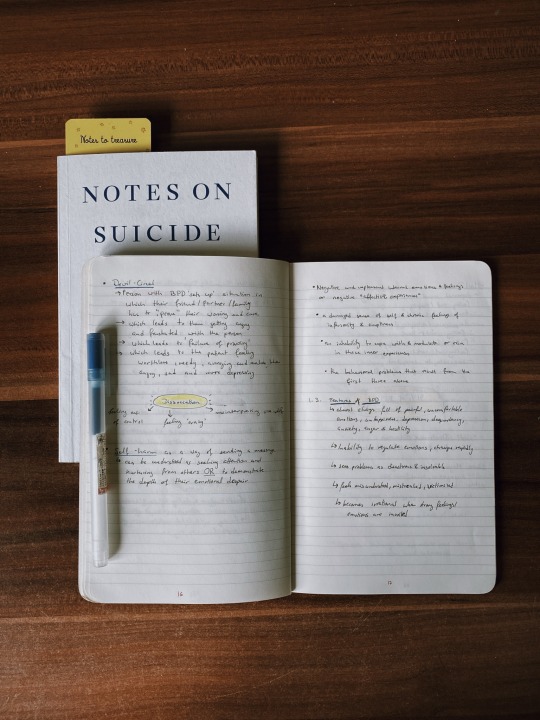 Notes to treasure
NOTES ON
SUICIDE
• Devil-Great
→ Person with BPD 'sets up' situations in
which their friend/partner/family
has to "prove" their worry and care
→ which leads to them getting angry
and frustrated with the person
→ which leads to 'failure of proving'
→ which leads to the patient feeling
worthless, needy, and making them
angry, sad and more depressing
Dissociation
feeling out
of control
feeling 'crazy'
• Self-harm as a way of sending a message
→ can be understood as seeking attention and
nurturing from others OR to demonstrate
the depth of their emotional despair
16
• Negative and unpleasant internal emotions & feelings
or negative "affective experiences"
• a damaged sense of self & chronic feelings of
inferiority & emptiness
• an inability to cope with & modulate or rein
in these inner experiences
• the behavioral problems that result from the
first three above
1.3. Features of BPD
↳ almost always full of painful, uncomfortable
emotions, unhappiness, depression, despondency,
anxiety, anger & hostility
↳ Inability to regulate emotions, changes rapidly
↳ sees problems as disastrous & unsolvable
↳ feels misunderstood, mistreated, victimized
↳ becomes irrational when strong feelings/
emotions are involved